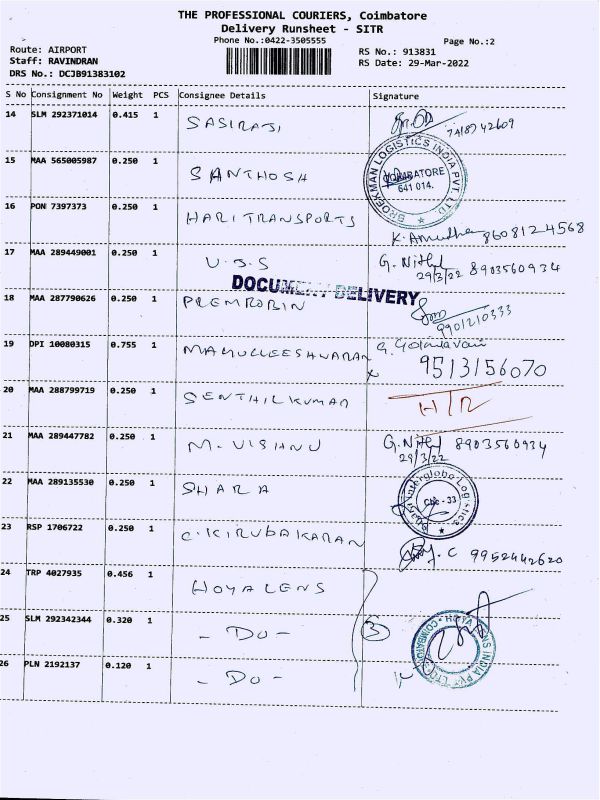 THE PROFESSIONAL COURIERS, Coimbatore
Delivery Runsheet - SITR
Phone No.:0422-3505555
Page No.:2
Route: AIRPORT
Staff: RAVINDRAN
DRS No.: DCJB91383102
RS No.: 913831
RS Date: 29-Mar-2022
S No Consignment No Weight PCS Consignee Details Signature
14 SLM 292371014 0.415 1 SASIRAJ
BROEKMAN LOGISTICS INDIA PVT. LTD.
COIMBATORE
641 014.
15 MAA 565005987 0.250 1 SANTHOSH
16 PON 7397373 0.250 1 HARI TRANSPORTS
K. Amutha 8608124568
17 MAA 289449001 0.250 1 U.S.S G. Nithy
29/3/22 8903560934
DOCUMENT DELIVERY
18 MAA 287790626 0.250 1 PREMROBIN
9901210333
19 DPI 10080315 0.755 1 MAHULLEESHWARAN
9513156070
20 MAA 288799719 0.250 1 SENTHILKUMAR
21 MAA 289447782 0.250 1 M. VISHNU G. Nithy 8903560934
29/3/22
22 MAA 289135530 0.250 1 SHARA
Interglobe Logistics
Cbe - 33
23 RSP 1706722 0.250 1 C. KIRUBAKARAN
C 9952442620
24 TRP 4027935 0.456 1 HOYA LENS
25 SLM 292342344 0.320 1 - Do - 3
HOYA LENS INDIA PVT LTD
COIMBATORE
26 PLN 2192137 0.120 1 - Do -